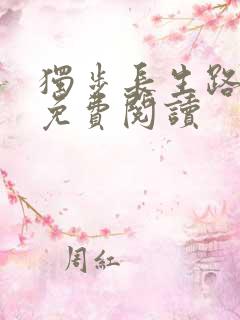 獨步長生路
免費閱讀
周紅